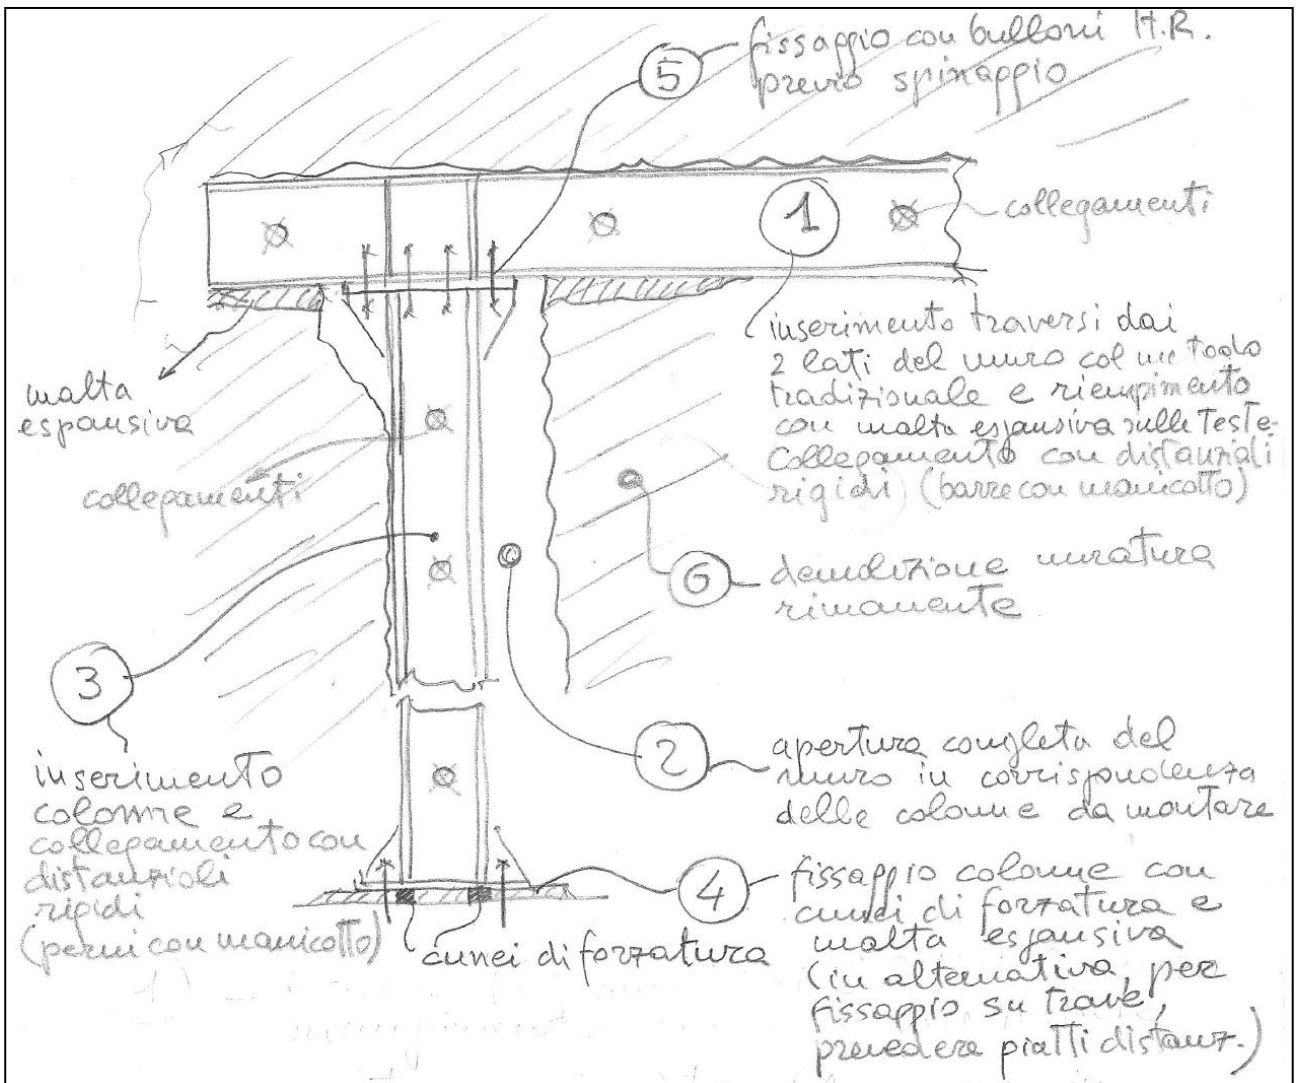 5
fissaggio con bulloni H.R.
previo spinaggio
1
collegamenti
inserimento traversi dai
2 lati del muro col metodo
tradizionale e riempimento
con malta espansiva sulle teste-
collegamento con distanziali
rigidi (barre con manicotto)
malta
espansiva
collegamenti
6
demolizione muratura
rimanente
3
inserimento
colonne e
collegamento con
distanzioli
rigidi
(perni con manicotto)
2
apertura completa del
muro in corrispondenza
delle colonne da montare
4
fissaggio colonne con
cunei di forzatura e
malta espansiva
(in alternativa, per
fissaggio su trave,
prevedere piatti distanz.)
cunei di forzatura